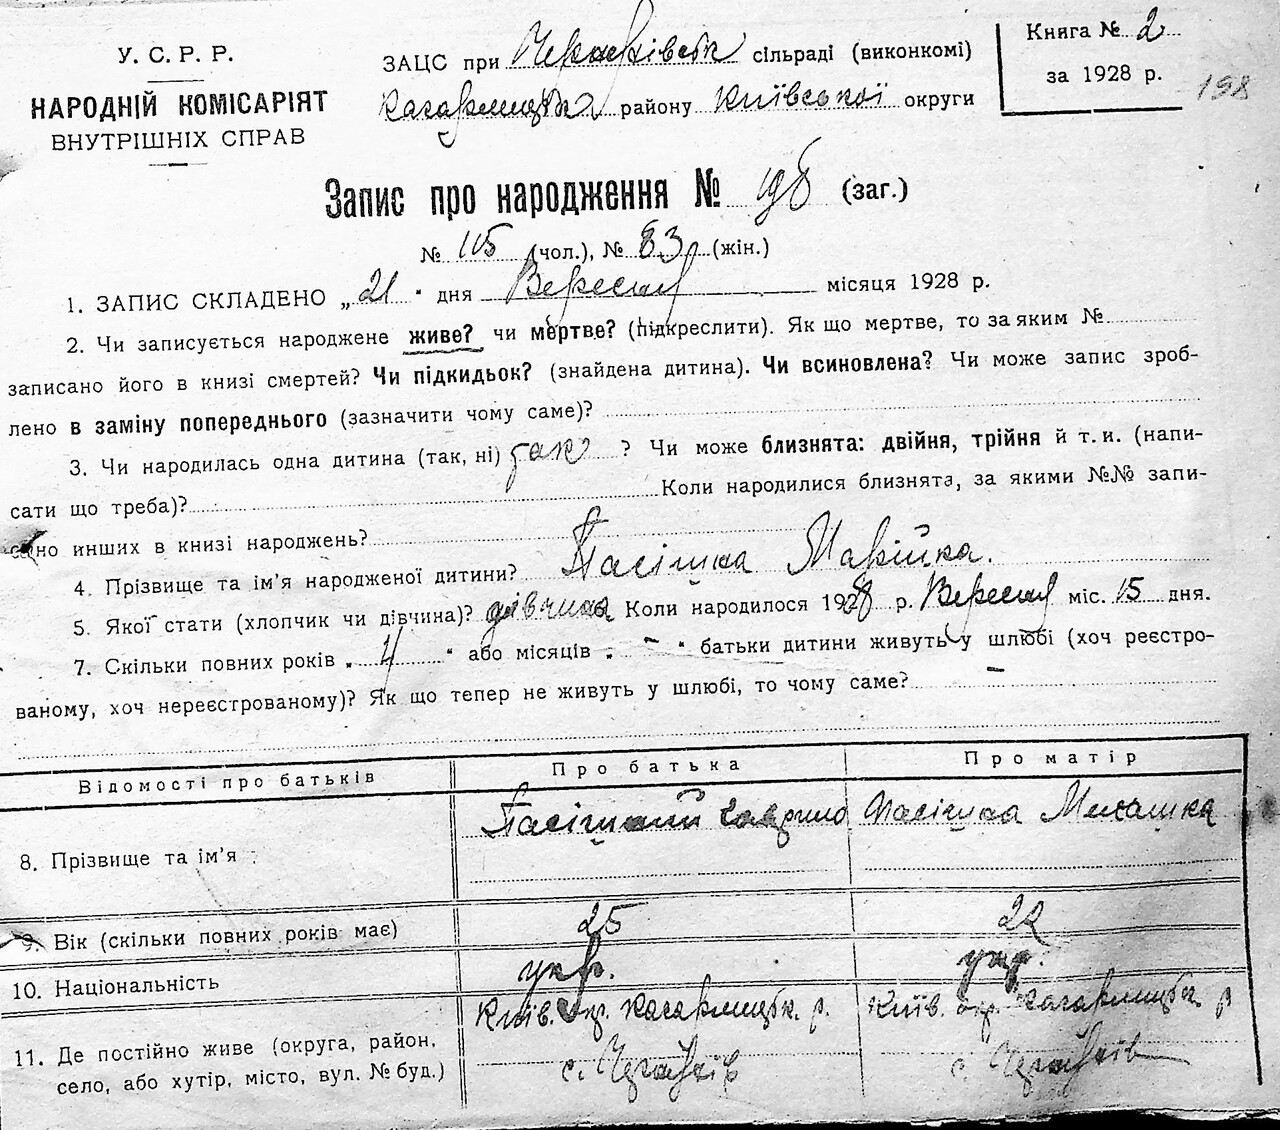 У. С. Р. Р.
НАРОДНІЙ КОМІСАРІЯТ
ВНУТРІШНІХ СПРАВ
ЗАЦС при сільраді (виконкомі)
Кагарлицьк. району Київської округи
Книга № 2
за 1928 р.
198
Запис про народження № 198 (заг.)
№ 115 (чол.), № 83 (жін.)
1. ЗАПИС СКЛАДЕНО „21“ дня Вересня місяця 1928 р.
2. Чи записується народжене живе? чи мертве? (підкреслити). Як що мертве, то за яким №
записано його в книзі смертей? Чи підкидьок? (знайдена дитина). Чи всиновлена? Чи може запис зроб-
лено в заміну попереднього (зазначити чому саме)?
3. Чи народилась одна дитина (так, ні) так ? Чи може близнята: двійня, трійня й т. и. (напи-
сати що треба)? Коли народилися близнята, за якими №№ запи-
сано инших в книзі народжень?
4. Прізвище та ім’я народженої дитини? Пасішка Марійка.
5. Якої стати (хлопчик чи дівчина)? дівчина Коли народилося 1928 р. Вересня міс. 15 дня.
7. Скільки повних років „ 4 “ або місяців „ - “ батьки дитини живуть у шлюбі (хоч реєстро-
ваному, хоч нереєстрованому)? Як що тепер не живуть у шлюбі, то чому саме? -
Відомості про батьків Про батька Про матір
8. Прізвище та ім’я : Гаврило Пасішка
9. Вік (скільки повних років має) 25 22
10. Національність укр. укр.
11. Де постійно живе (округа, район, Київ. окр. Кагарлицьк. р. Київ. окр. Кагарлицьк. р
село, або хутір, місто, вул. № буд.) с. с.